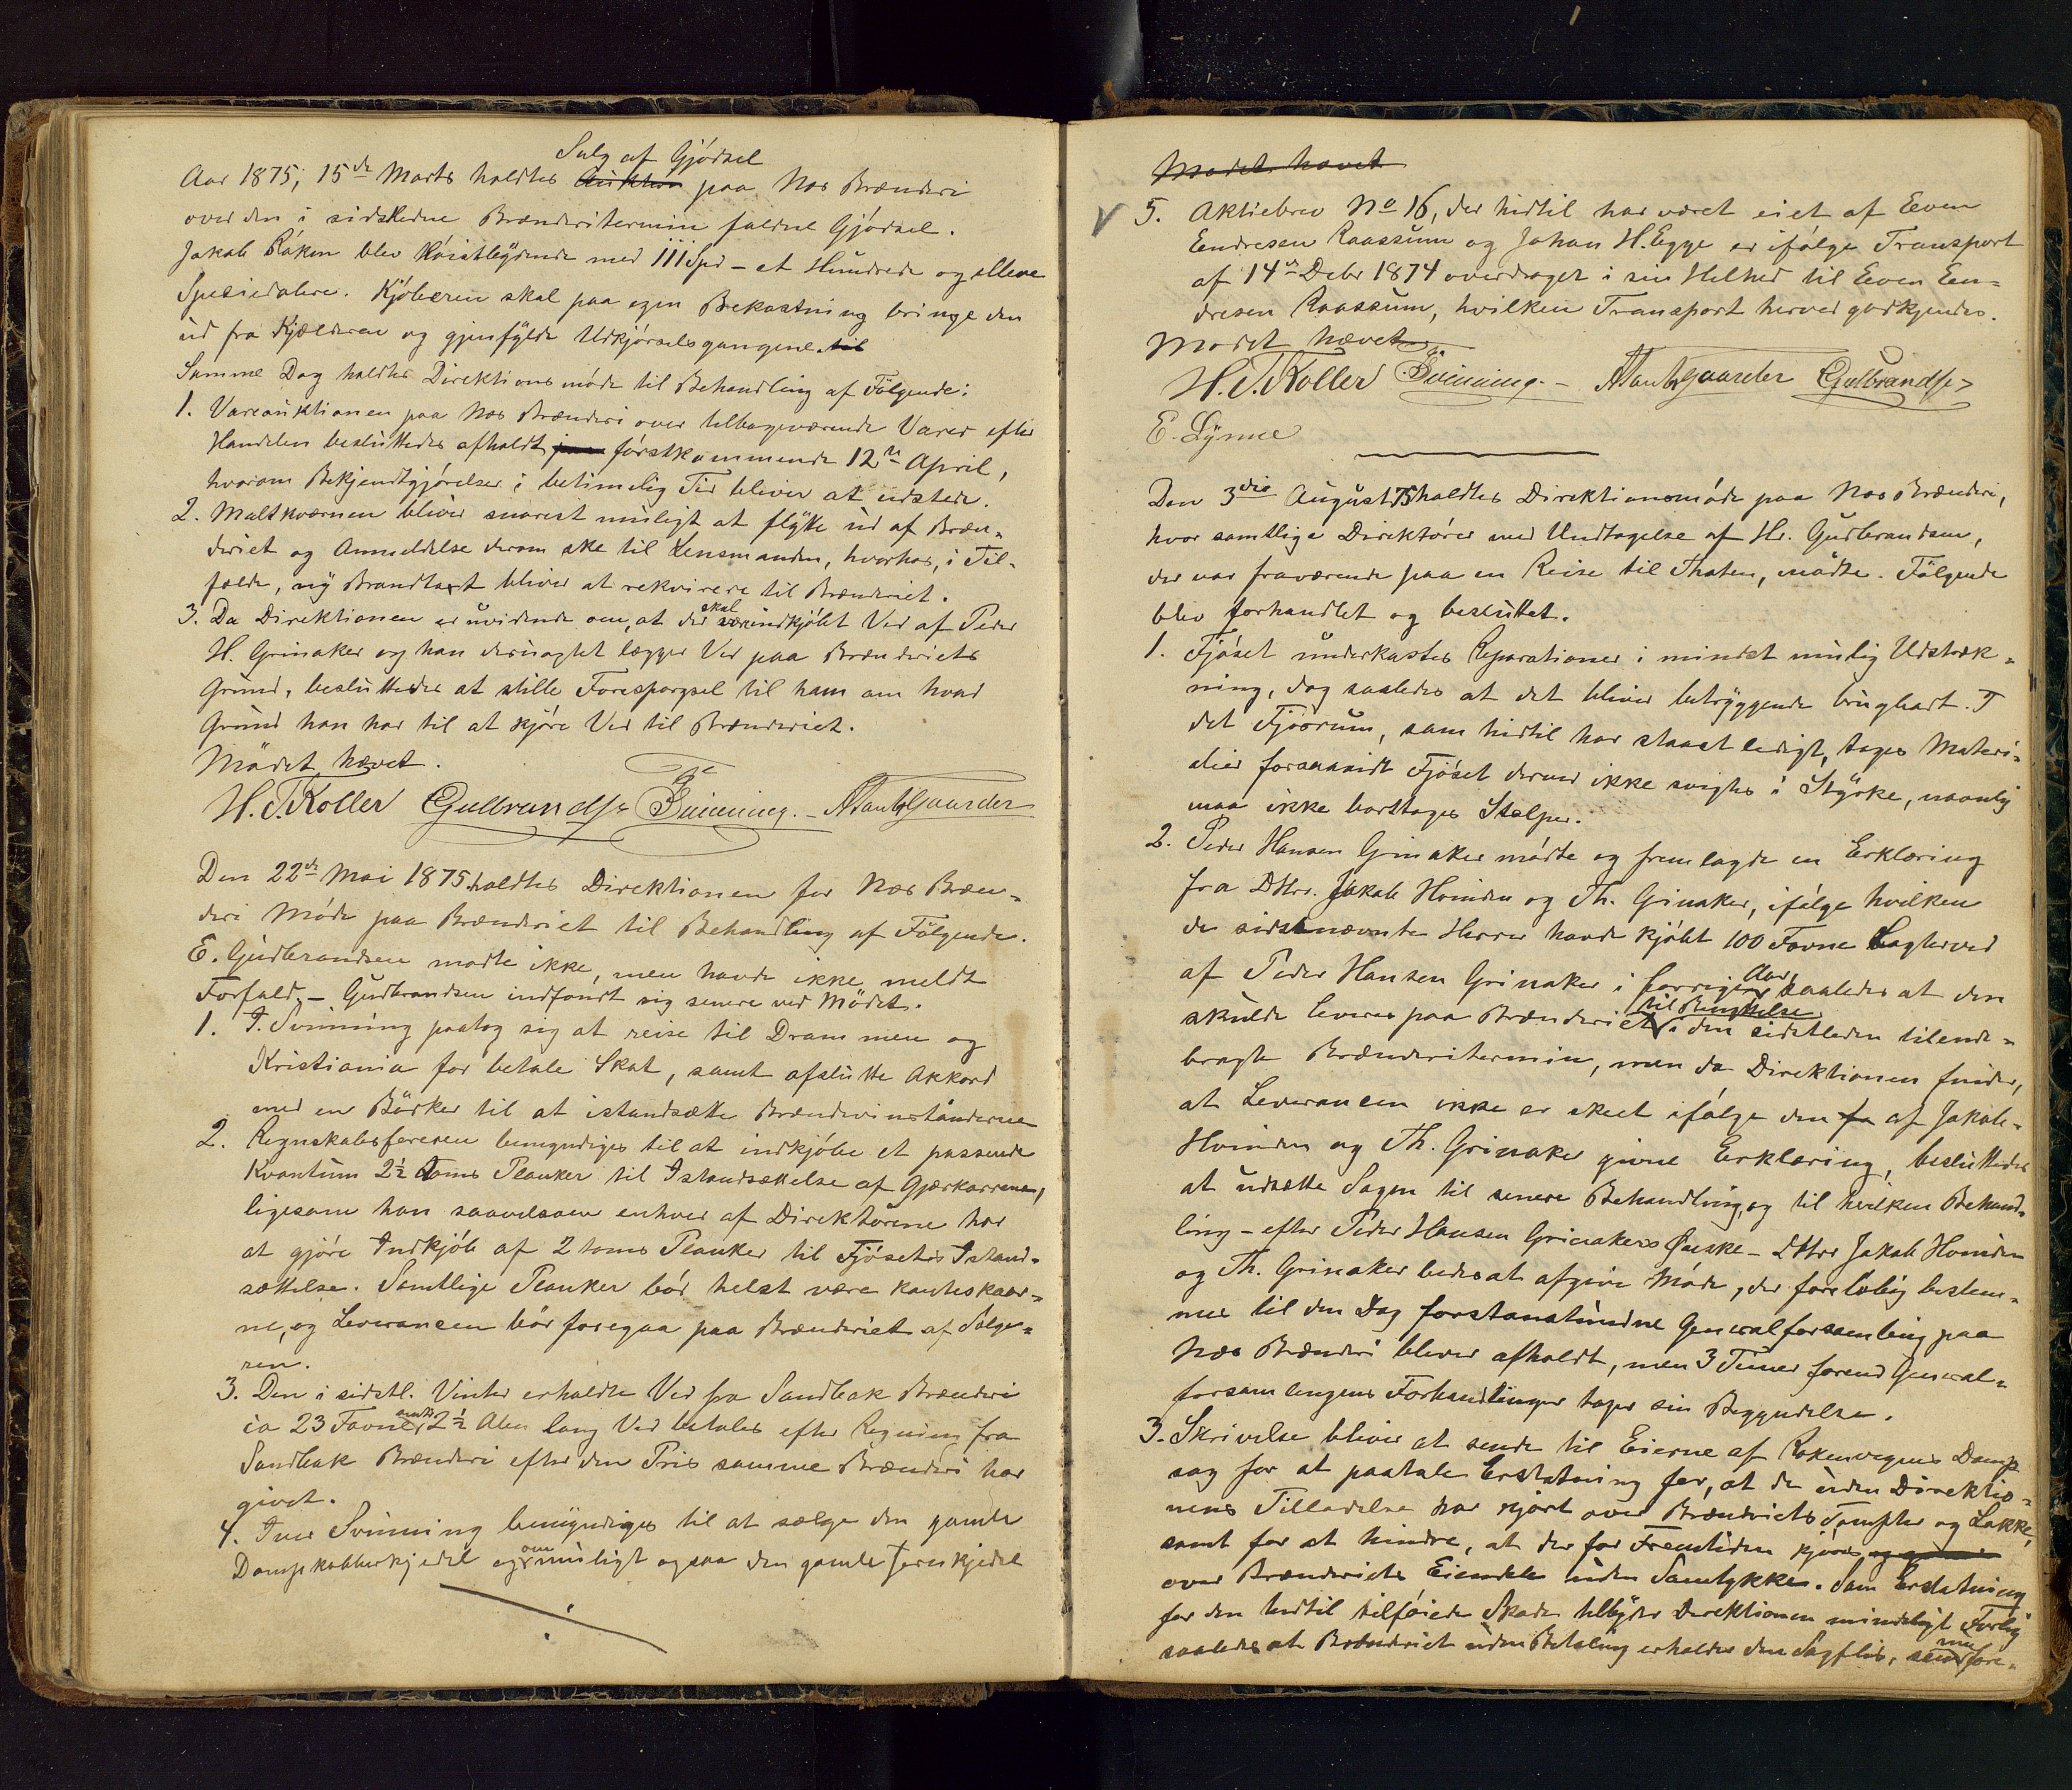 Salg af Gjödsel
Aar 1875, 15de Marts holdtes Auktion paa Næs Brænderi
over den i sidstledne Brænderitermin faldne Gjödsel.
Jakob Råken blev Höistbydende med 111 Spd – et Hundrede og elleve
Speciedalere. Kjöberen skal paa egen Bekostning bringe den
ud fra Kjælderen og gjenfylde Udkjörselsgangene. til
Samme Dag holdtes Direktionsmöde til Behandling af Fölgende:
1. Vareauktionen paa Næs Brænderi over tilbageværende Varer efter
Handelen besluttedes afholdt förstkommende 12te April,
hvorom Bekjendtgjörelser i betimelig Tid bliver at udstede.
2. Maltkværnen bliver snarest muligt at flytte ud af Bræn-
deriet og Anmeldelse derom ske til Lensmanden, hvorhos, i Til-
fælde, ny Brandtaxt bliver at rekvirere til Brænderiet.
3. Da Direktionen er uvidende om, at der skal være indkjöbt Ved af Peder
H. Grinaker og han desuagtet lægger Ved paa Brænderiets
Grund, besluttedes at stille Forespörgsel til ham om hvad
Grund han har til at kjöre Ved til Brænderiet.
Mödet hævet.
H. T. Koller EGulbrandsen T. Svinning. – A Tantbgaarder
Den 22de Mai 1875 holdtes Direktionen for Næs Bræn-
deri Möde paa Brænderiet til Behandling af Fölgende.
E. Gudbrandsen mødte ikke, men havde ikke meldt
Forfald. – Gudbrandsen indfandt sig senere ved Mödet.
1. I. Svinning paatog sig at reise til Drammen og
Kristiania for betale Skat, samt afslutte Akkord
med en Bödker til at istandsætte Brændevinstönderne
2. Regnskabsföreren bemyndiges til at indkjöbe et passende
Kvantum 2½ Toms Planker til Istandsættelse af Gjærkarrene,
ligesom han saavelsom enhver af Direktörene har
at gjöre Indkjöb af 2 toms Planker til Fjösets Istand-
sættelse. Samtlige Planker bör helst være kanteskaar-
ne, og Leverancen bör foregaa paa Brænderiet af Sælge-
ren.
3. Den i sidstl. Vinter erholdte Ved fra Sandbak Brænderi
ca 23 Favne 2½ Alen lang Ved betales efter Regning fra
Sandbak Brænderi efter den Pris samme Brænderi har
givet.
4. Iver Svinning bemyndiges til at sælge den gamle
Dampkobberkjedel og om muligt ogsaa den gamle Jernkjedel
Mødet hævet
5. Aktiebrev No 16, der hidtil har været eiet af Even
Endresen Raassum og Johan H. Egge er ifölge Transport
af 14de Debr 1874 overdraget i sin Helhed til Even En-
dresen Raassum, hvilken Transport herved godkjendes.
Mødet hævet
H. T. Koller T. Svinning. – A Tantbgaarder EGulbrandsen
E. Lynne
Den 3die August 75 holdtes Direktionsmöde paa Næs Brænderi,
hvor samtlige Direktörer med Undtagelse af Hr. Gudbrandsen,
der var fraværende paa en Reise til Thoten, mödte. Fölgende
blev forhandlet og besluttet.
1. Fjöset underkastes Reparationer i mindst mulig Udstræk-
ning, dog saaledes at det bliver betryggende brugbart. I
det Fjösrum, som hidtil har staaet ledigt, tages Materi-
alier forsaavidt Fjöset derved ikke svigtes i Styrke, navnlig
maa ikke borttages Stolper.
2. Peder Hansen Grinaker mödte og fremlagde en Erklæring
fra DHrr. Jakob Hvinden og Th. Grinaker, ifölge hvilken
de sidstnævnte Herrer havde kjöbt 100 Favne Bagterved
af Peder Hansen Grinaker i forrige Aar, saaledes at den
skulde leveres paa Brænderiet til Benyttelse i den sidstleden tilende-
bragte Brænderitermin, men da Direktionen finder,
at Leverancen ikke er skeet ifölge den fa af Jakob
Hvinden og Th. Grinaker givne Erklæring, besluttedes
at udsætte Sagen til senere Behandling, og til hvilken Behand-
ling – efter Peder Hansen Grinakers Ønske – DHrr Jakob Hvinden
og Th. Grinaker bedes at afgive Möde, der foreløbig bestem-
mes til den Dag förstanstundne Generalforsamling paa
Næs Brænderi bliver afholdt, men 3 Timer forend General-
forsamlingens Forhandlinger tager sin Begyndelse.
3. Skrivelse bliver at sende til Eierne af Rökenvegnes Damp
sag for at paatale Erstatning for, at de uden Direktio-
nens Tilladelse har kjört over Brænderiets Tompter og Løkke,
samt for at hindre, at der for Fremtiden kjöres
over Brænderiets Eiendele uden Samtykke. Som Erstatning
for den hidtil tilföiede Skade tilbyder Direktionen mindeligt Forlig
saaledes at Brænderiet uden Betaling erholder den Sagflis, som nu fore-